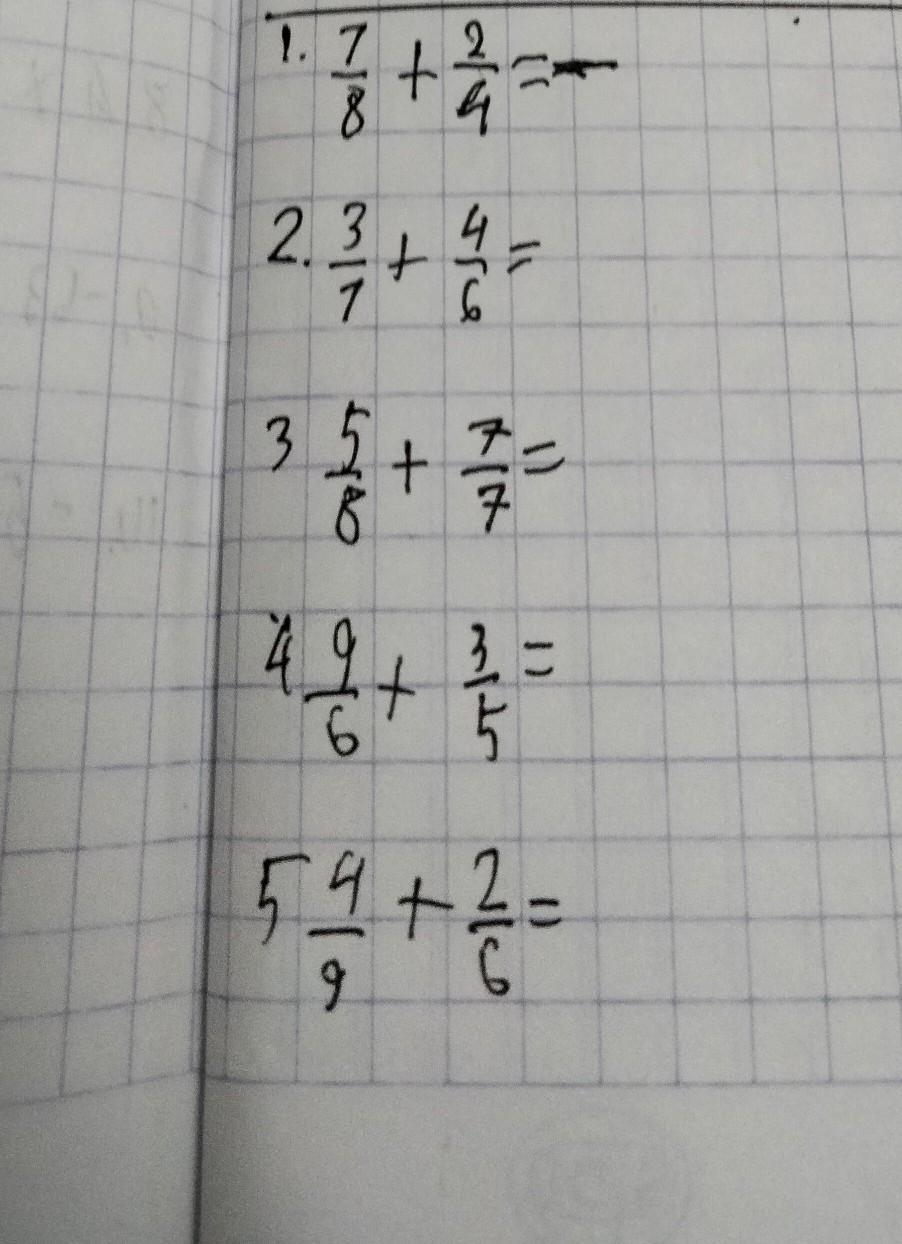 1. 7/8 + 2/4 =
2. 3/1 + 4/6 =
3 5/8 + 7/7 =
4 9/6 + 3/5 =
5 4/9 + 2/6 =